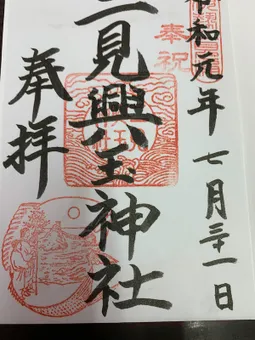 奉祝
令和元年七月三十一日
二見興玉神社
奉拝